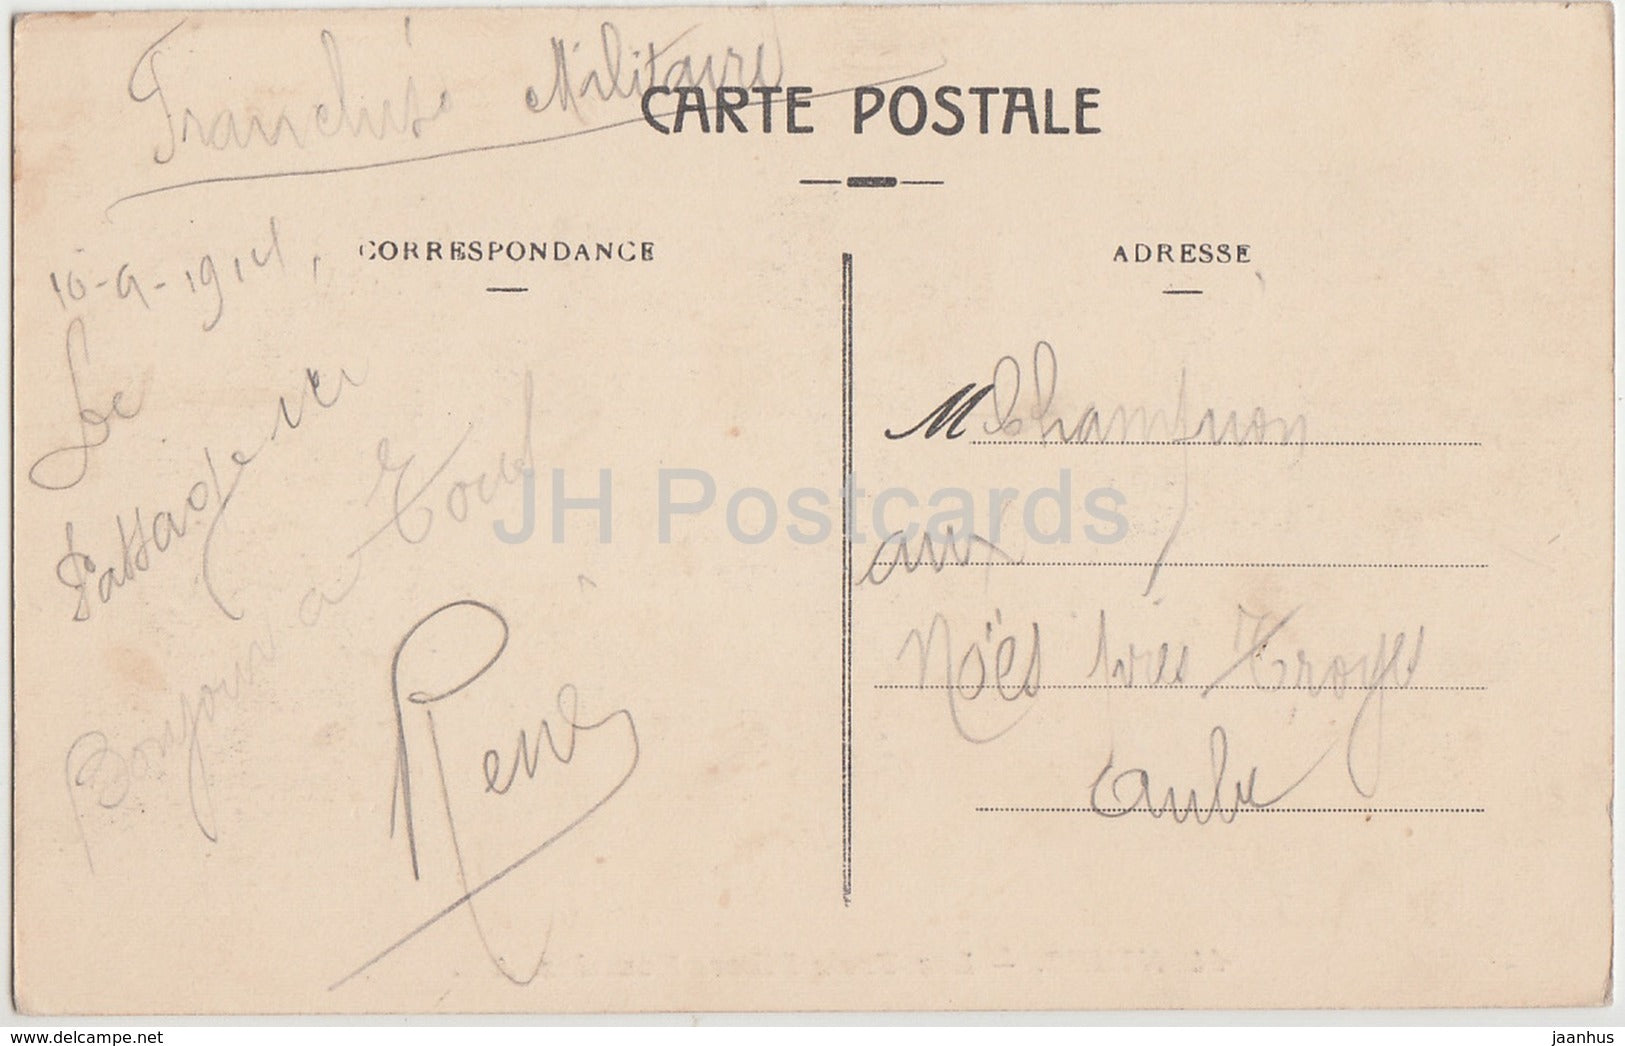 Franchise Militaire
CARTE POSTALE
CORRESPONDANCE
10-9-1914,
Le
Bonjour a Tous
René
ADRESSE
M Champion
aux
Noës près Troyes
Aube
JH Postcards
www.delcampe.net
jaanhus